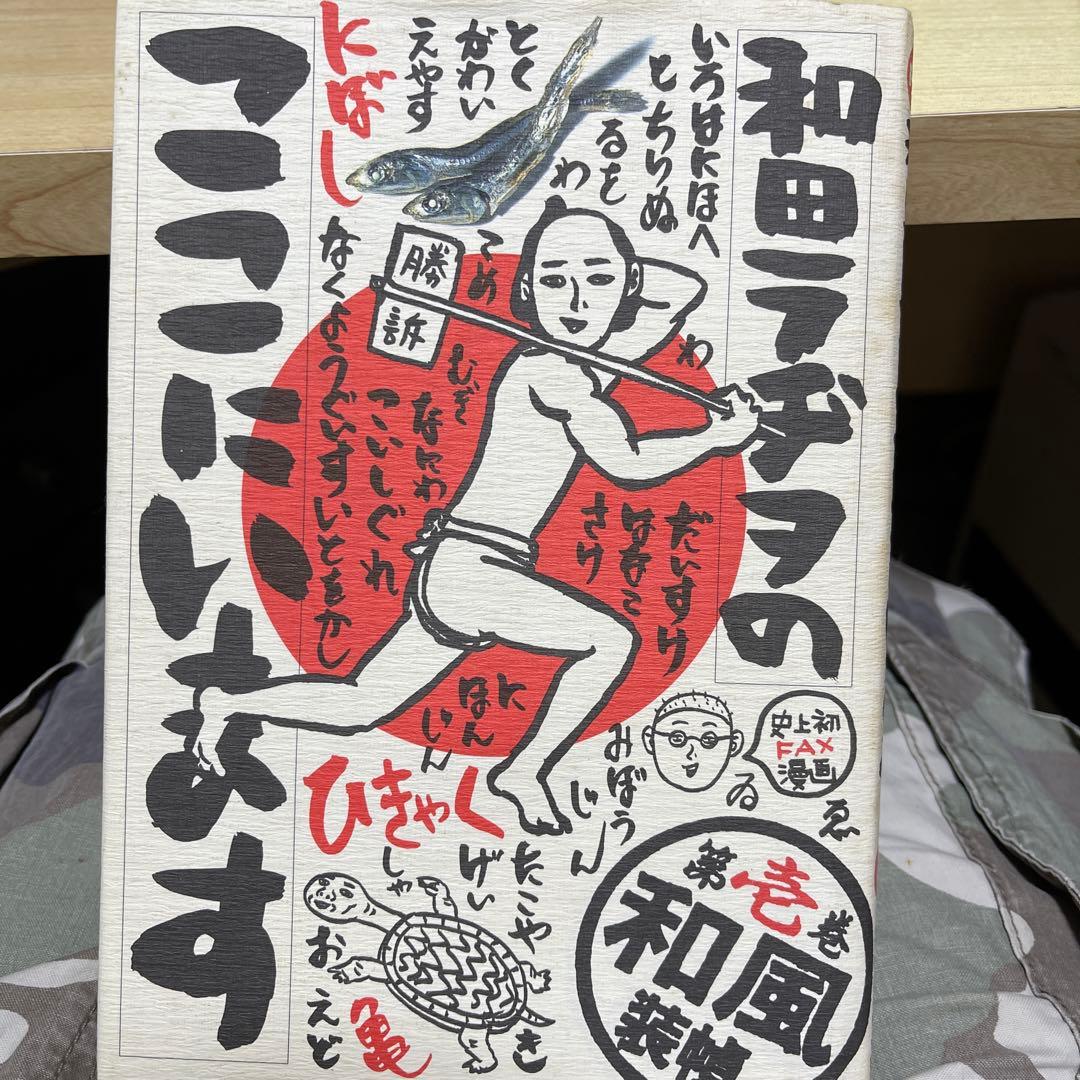 和田ラヂヲの
ここにいます
いろはにほへ
とちりぬ
るを
わ
とく
がわい
えやす
にばし
勝訴
てめ
わ
むぎ
なにわ
こいしぐれ
なくようぐいすいとをかし
だいすけ
はなこ
さけ
にほんじん
みぼうじん
ひきゃく
史上初
FAX
漫画
ゐ
ゑ
たこやき
げいしゃ
おえど
亀
第壱巻
和風
装幀